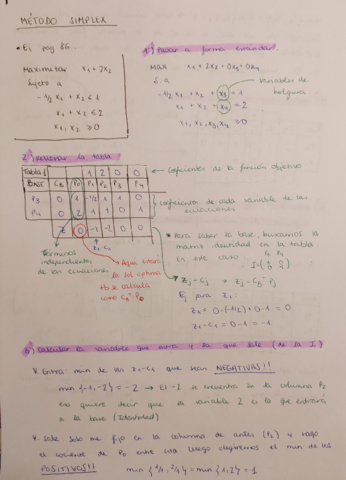 MÉTODO SIMPLEX
• Ej pag 86
Maximizar x1 + 2x2
Sujeto a
-1/2 x1 + x2 ≤ 1
x1 + x2 ≤ 2
x1, x2 ≥ 0
1º) Pasar a forma estándar
Max x1 + 2x2 + 0x3 + 0x4
s.a
-1/2 x1 + x2 + x3 = 1
x1 + x2 + x4 = 2
x1, x2, x3, x4 ≥ 0
variables de
holgura
2º) Rellenar la tabla
Tabla 1 1 2 0 0
Base CB P0 P1 P2 P3 P4
P3 0 1 -1/2 1 1 0
P4 0 2 1 1 0 1
Z 0 -1 -2 0 0
Coeficientes de la función objetivo
coeficientes de cada variable de las
ecuaciones
Términos
independientes
de las ecuaciones
Z1-C1
Aquí estará
la sol óptima
se calcula
como CB · P0
* Para saber la base, buscamos la
matriz identidad en la tabla.
En este caso P3 P4
I = (1 0 0 1)
Zj - Cj → Zj = CB · Pj
Ej para Z1
Z1 = 0·(-1/2) + 0·1 = 0
Z1-C1 = 0-1 = -1
3) Calcular la variable que entra y la que sale (de la I)
* Entra min de los Zj-Cj que sean NEGATIVOS!!
min {-1,-2} = -2 → El -2 se encuentra en la columna P2
eso quiere decir que la variable 2 es la que entrará
a la base (Identidad)
* Sale. Solo me fijo en la columna de antes (P2) y hago
el cociente de P0 entre esta. Luego elegiremos el min de los
POSITIVOS!! min {1/1, 2/1} = min {1,2} = 1